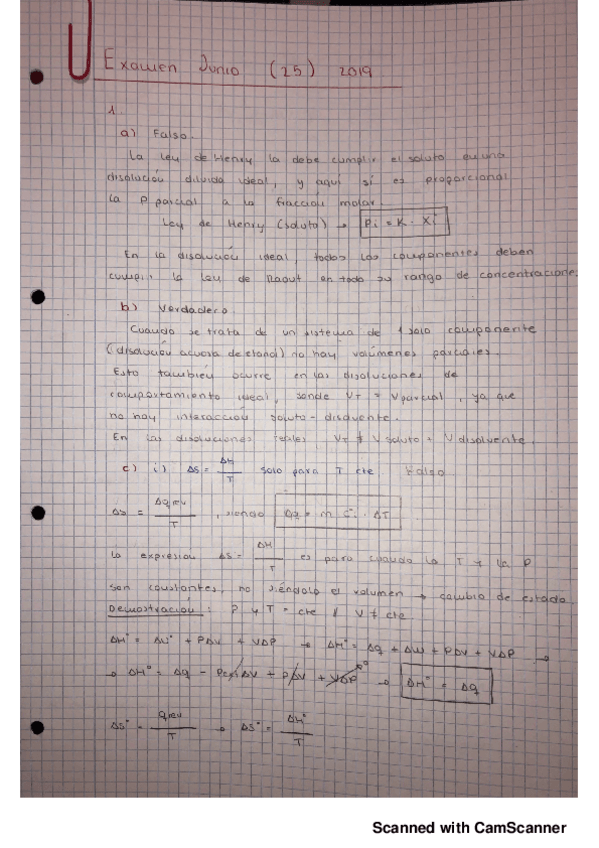 Examen Junio (25) 2019
1.
a) Falso.
La ley de Henry la debe cumplir el soluto en una
disolución diluida ideal, y aquí sí es proporcional
la P parcial a la fracción molar.
Ley de Henry (soluto) → Pi = K · Xi
En la disolución ideal, todos los componentes deben
cumplir la ley de Raoult en todo su rango de concentracione.
b) Verdadero.
Cuando se trata de un sistema de 1 solo componente
(disolución acuosa de etanol) no hay volúmenes parciales.
Esto también ocurre en las disoluciones de
comportamiento ideal, donde VT = Vparcial, ya que
no hay interacción soluto-disolvente.
En las disoluciones reales, VT ≠ V soluto + V disolvente.
c) i) ΔS = ΔH/T solo para T cte. Falso
ΔS = Δqrev/T, siendo Δq = m · c · ΔT
La expresión ΔS = ΔH/T es para cuando la T y la P
son constantes, no siéndolo el volumen → cambio de estado.
Demostración: P y T = cte // V ≠ cte
ΔH° = ΔU° + PΔV + VΔP → ΔH° = Δq + Δw + PΔV + VΔP →
→ ΔH° = Δq - PextΔV + PΔV + VΔP 0 → ΔH° = Δq
ΔS° = qrev/T → ΔS° = ΔH°/T
Scanned with CamScanner